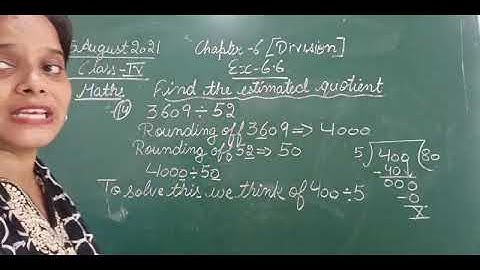 5 August 2021 Chapter-6 [Division]
Class-IV Ex-6.6
Maths Find the estimated quotient
14 3609÷52
Rounding off 3609 => 4000
Rounding off 52 => 50
4000÷50
To solve this we think of 400÷5
5 400 80
-40
000
-0
X